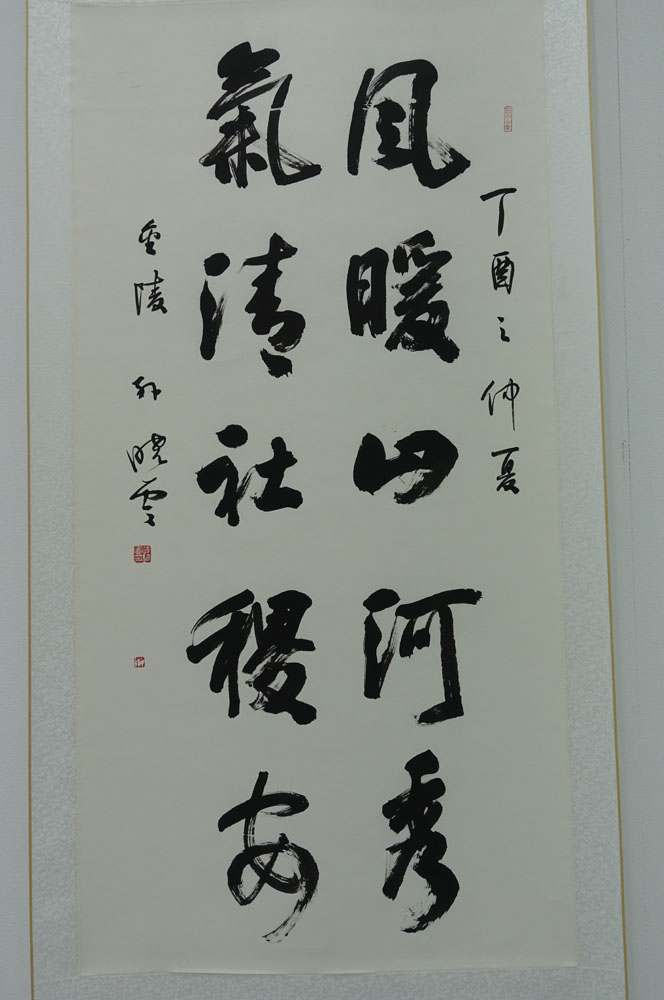 丁酉之仲夏
風暖山河秀
氣清社稷安
金陵 孙晓云